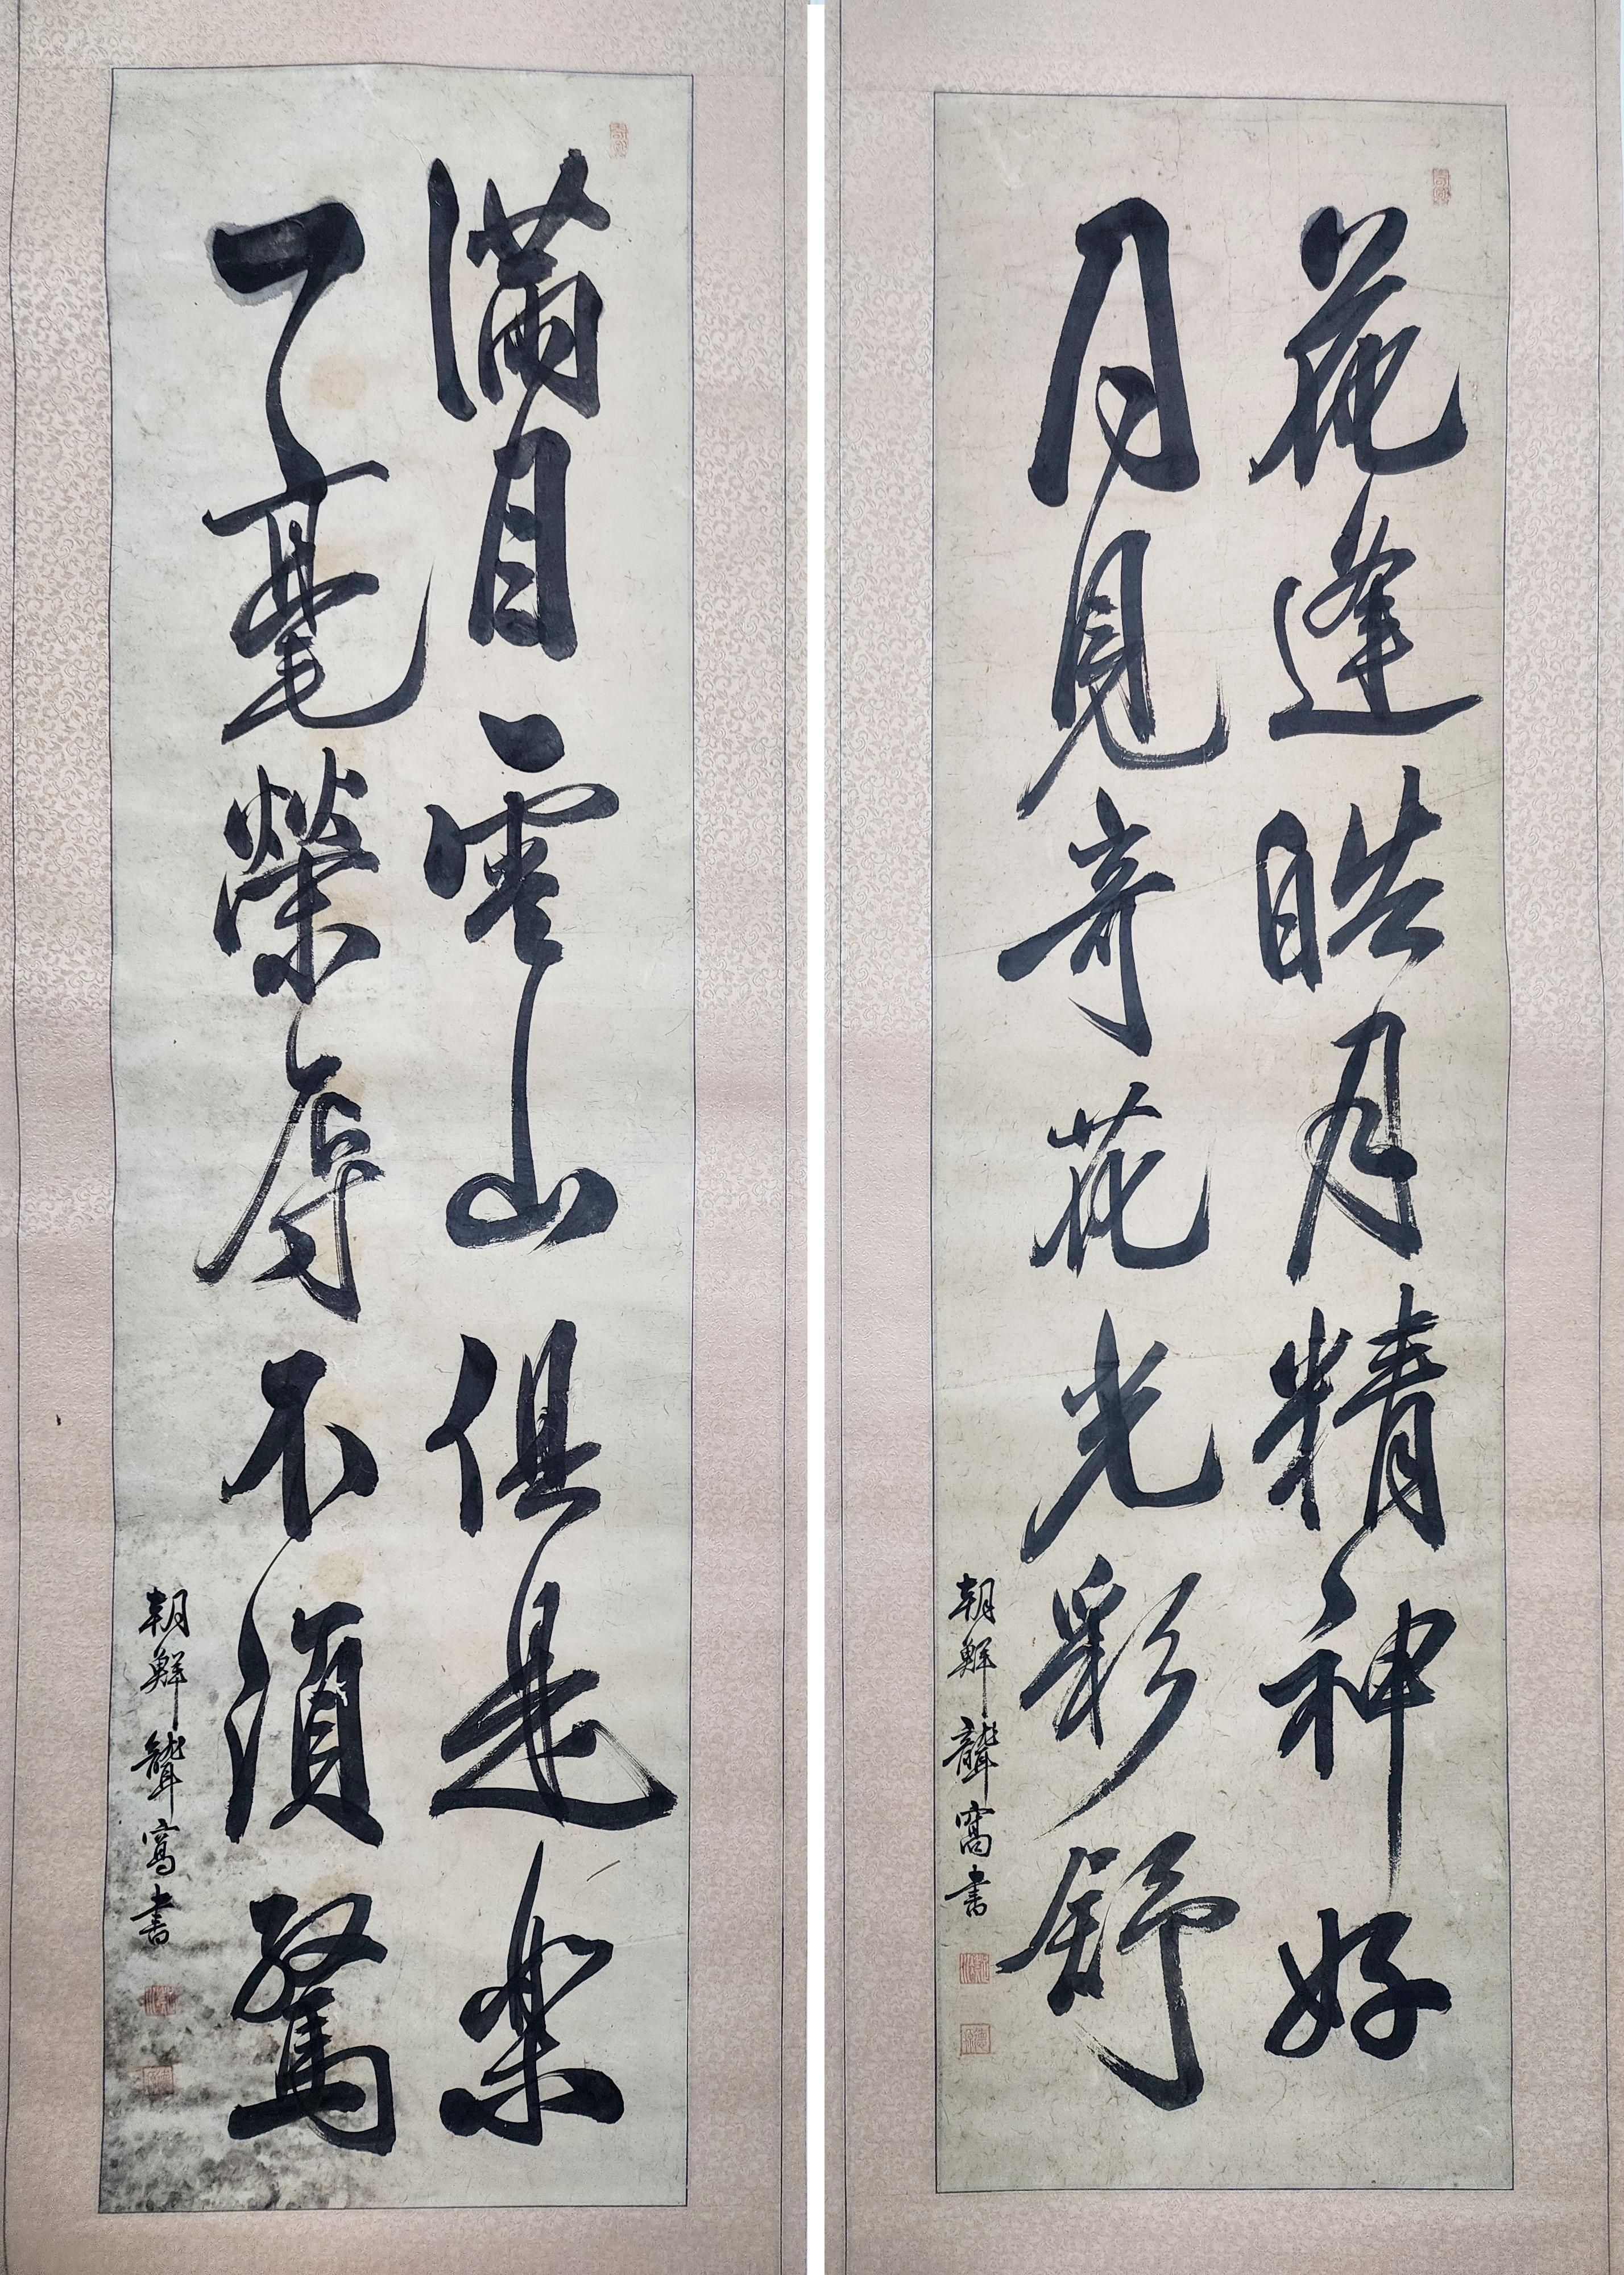 花逢皓月精神好
月見奇花光彩舒
朝鮮聾窩書
滿目雲山俱是樂
一毫榮辱不須驚
朝鮮聾窩書